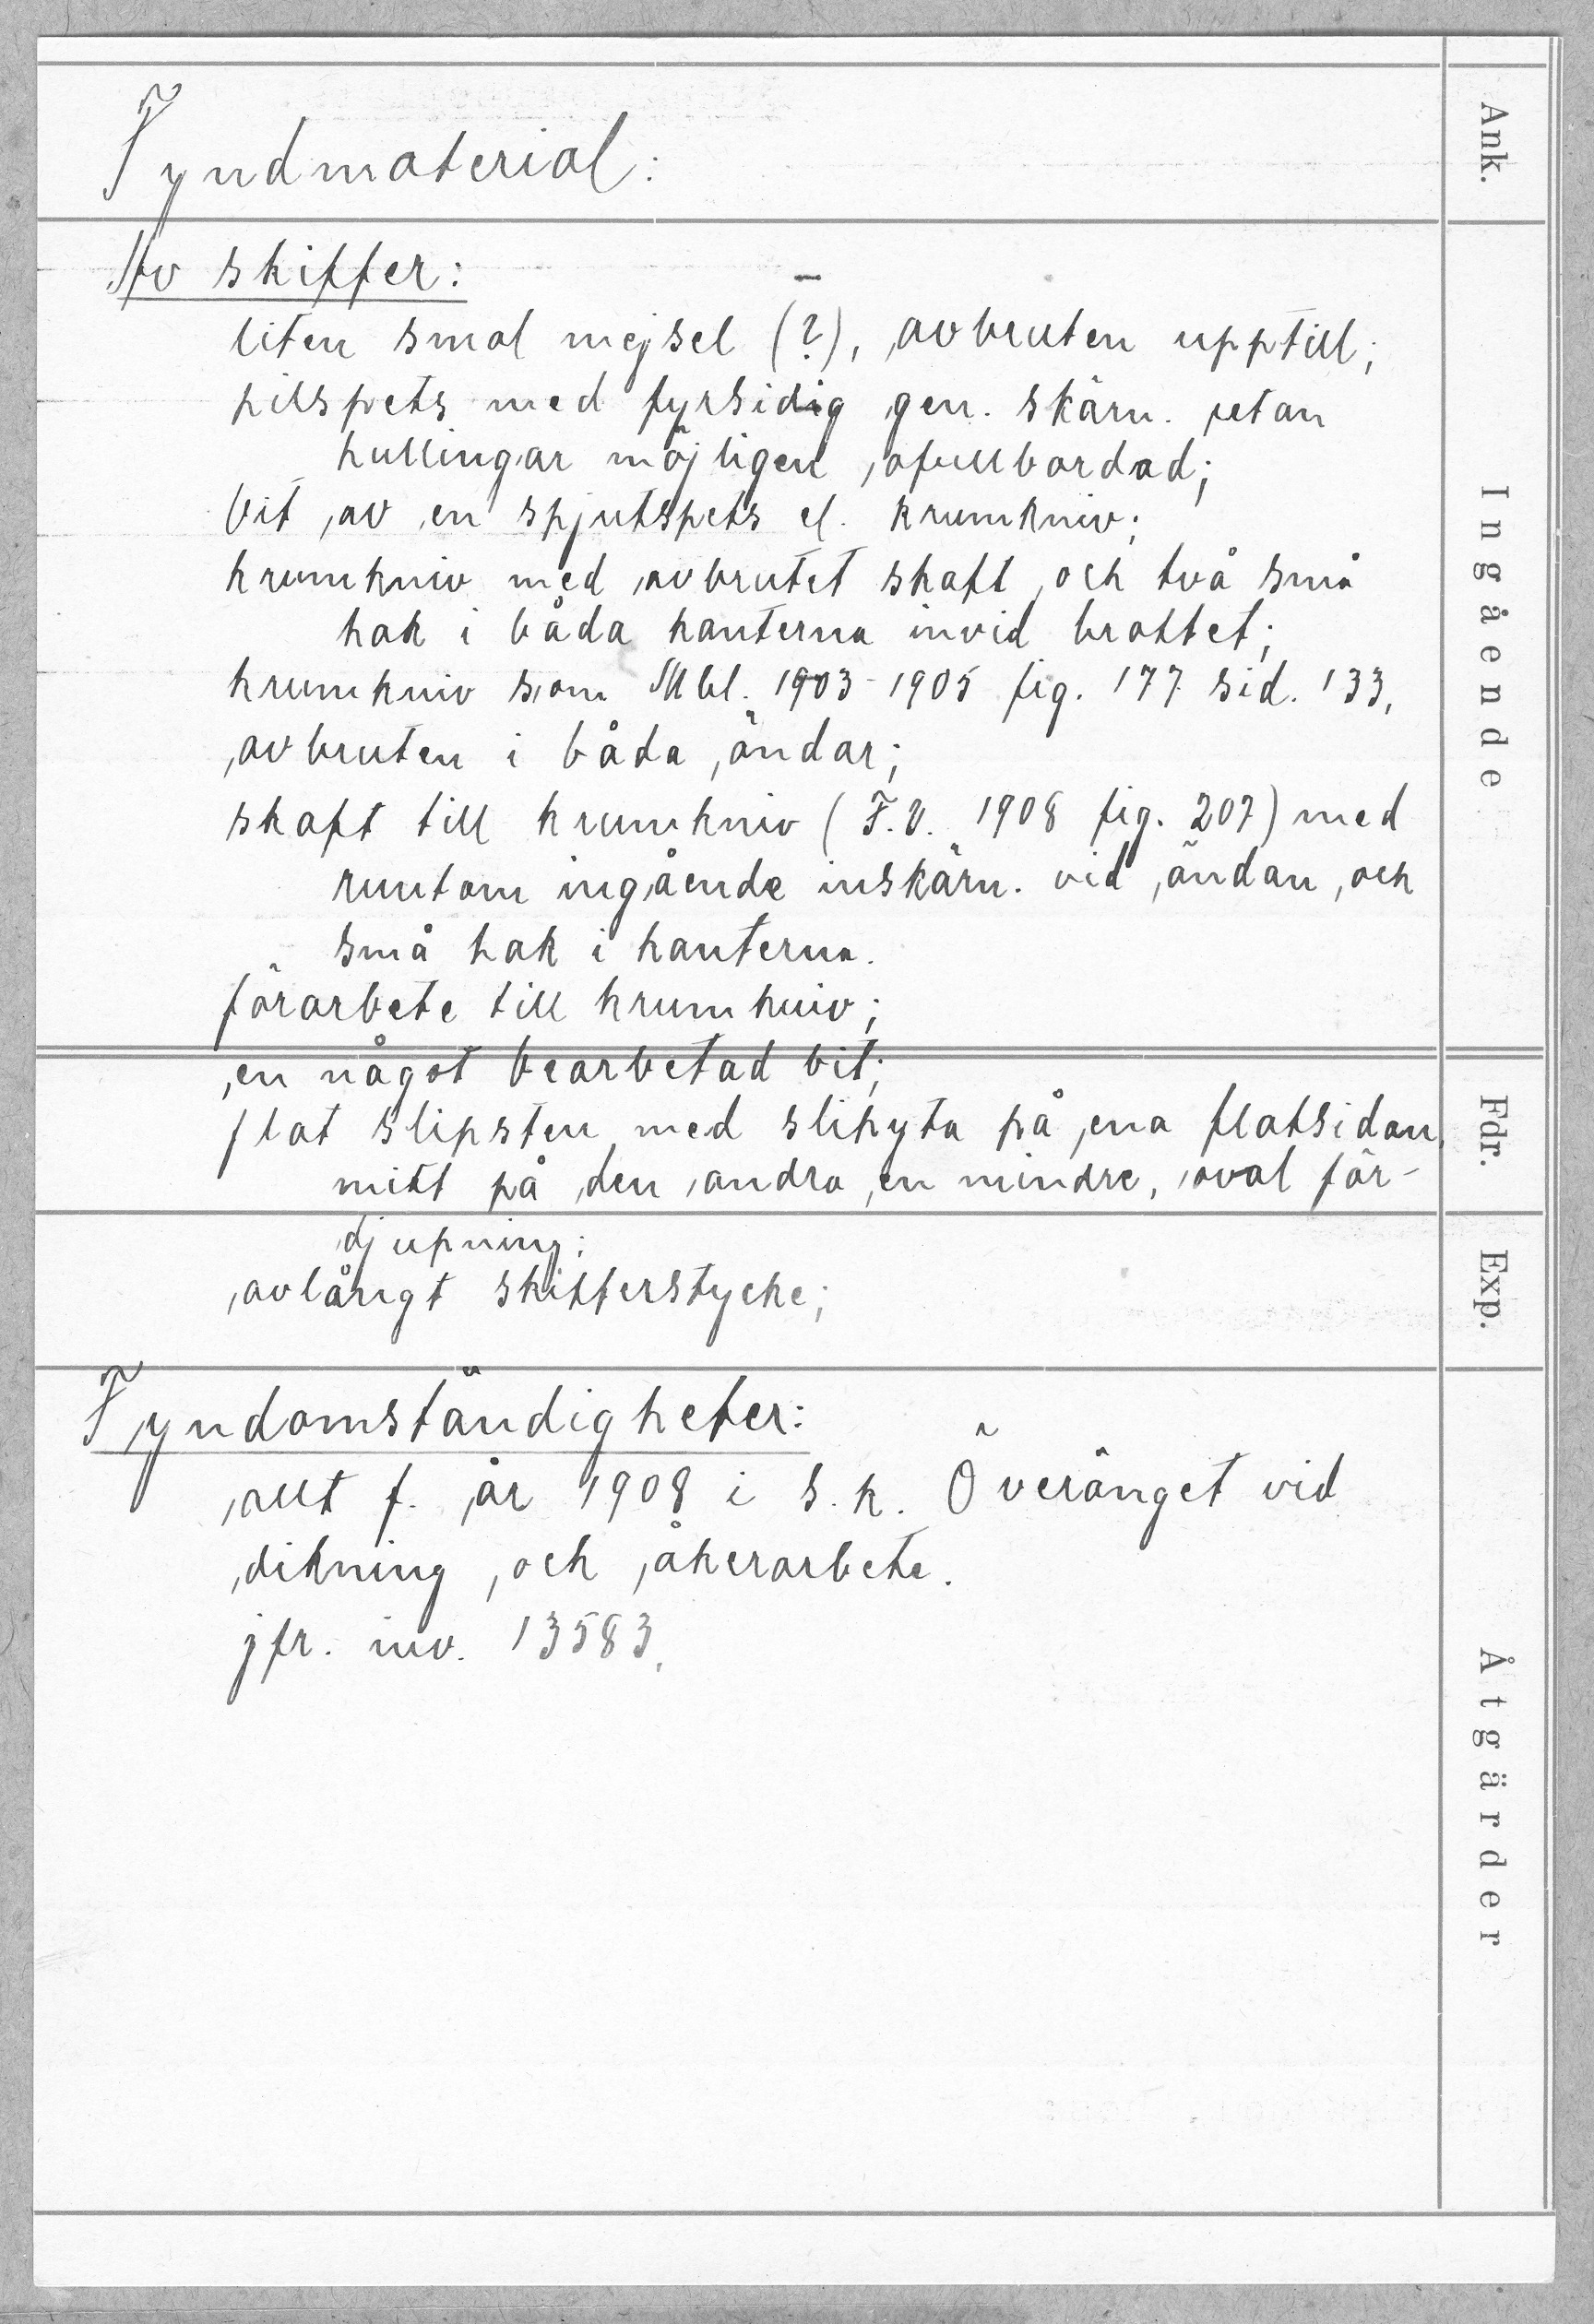 Fyndmaterial:
Av skiffer:
liten smal mejsel (?), avbruten upptill;
pilspets med fyrsidig gen. skärn. utan
hullingar möjligen ofullbordad;
bit av en spjutspets el. krumkniv;
krumkniv med avbrutet skaft och två små
hak i båda kanterna invid brottet;
krumkniv som Mbl. 1903-1905 fig. 177 sid. 133,
avbruten i båda ändar;
skaft till krumkniv (F.V. 1908 fig. 207) med
runtom ingående inskärn. vid ändan och
små hak i kanterna.
förarbete till krumkniv;
en något bearbetad bit;
flat slipsten med slipyta på ena flatsidan,
mitt på den andra en mindre, oval för-
djupning;
avlångt skifferstycke;
Fyndomständigheter:
allt f. år 1908 i s.k. Överänget vid
dikning och åkerarbete.
jfr. inv. 13583.
Ank.
Ingående
Fdr.
Exp.
Åtgärder